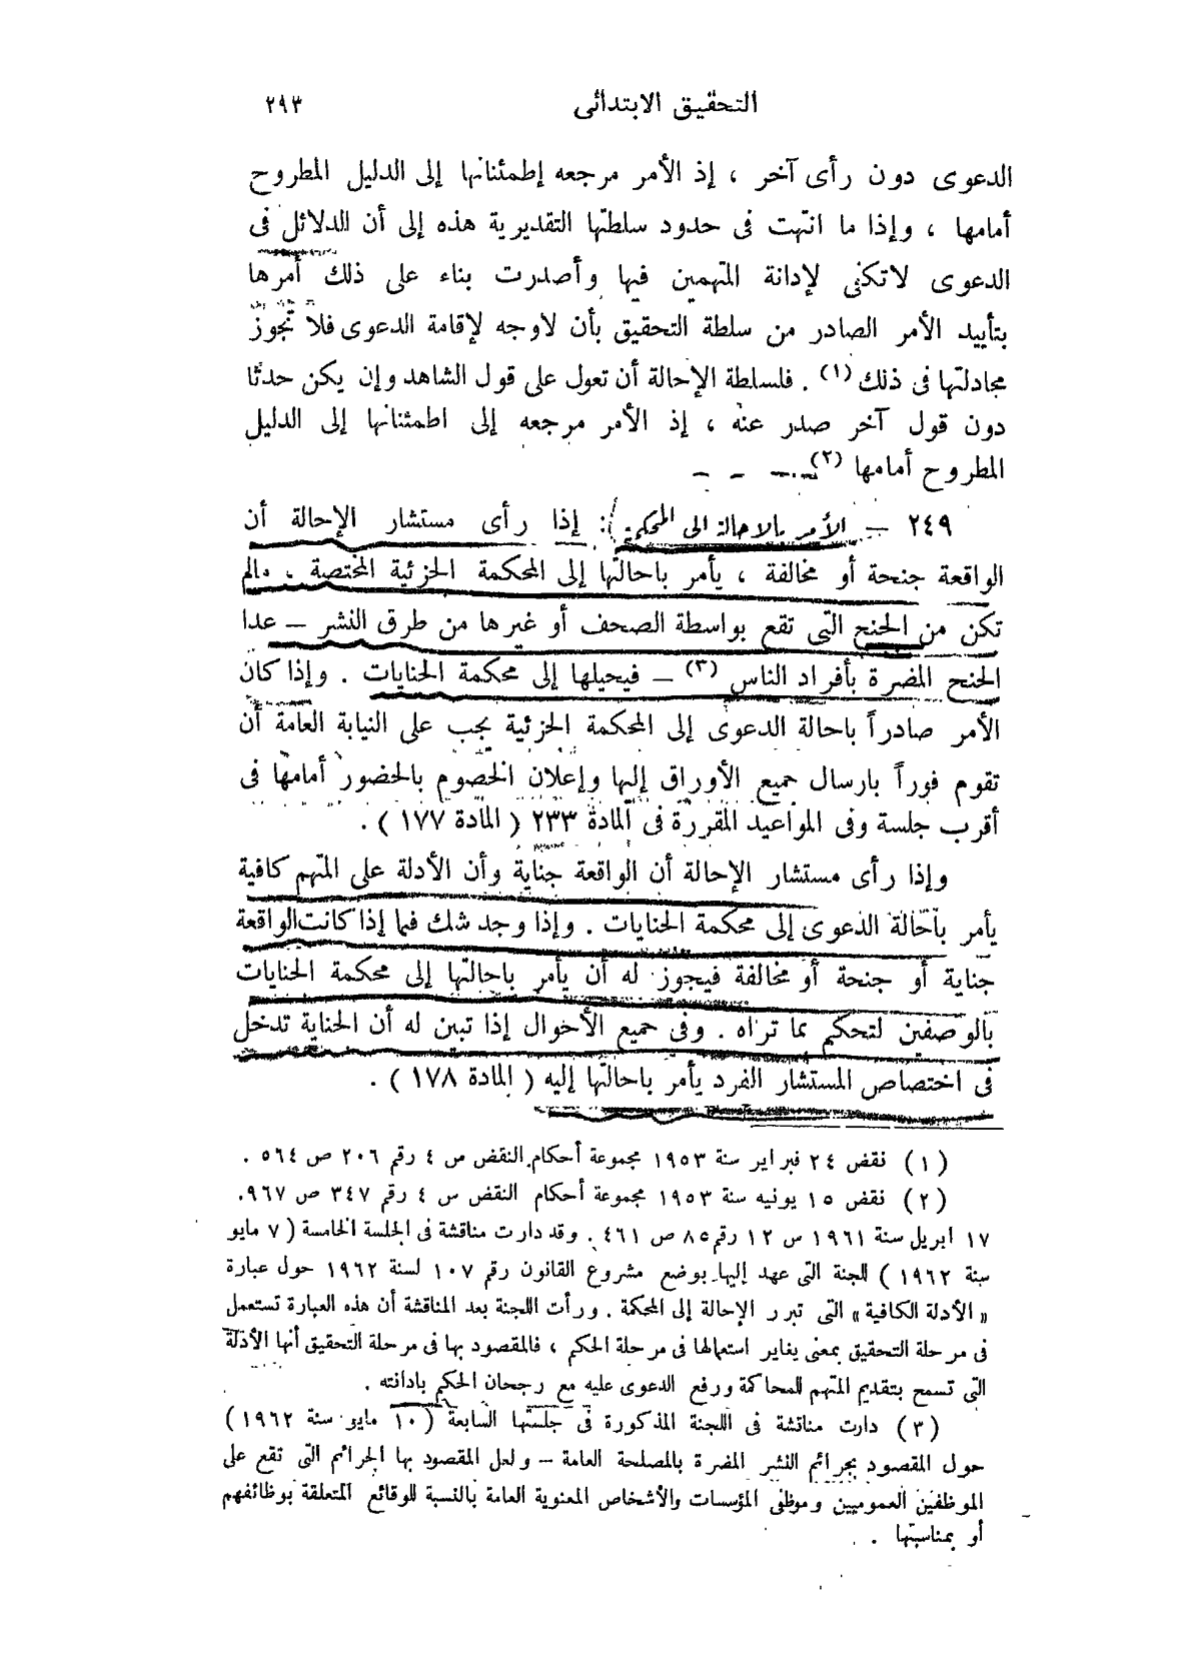 التحقيق الابتدائى ٢٩٣
الدعوى دون رأى آخر ، إذ الأمر مرجعه إطمئنانها إلى الدليل المطروح
أمامها ، وإذا ما انتهت فى حدود سلطتها التقديرية هذه إلى أن الدلائل فى
الدعوى لاتكفى لإدانة المتهمين فيها وأصدرت بناء على ذلك أمرها
بتأييد الأمر الصادر من سلطة التحقيق بأن لاوجه لإقامة الدعوى فلا تجوز
مجادلتها فى ذلك (١) . فلسلطة الإحالة أن تعول على قول الشاهد وإن يكن حدثا
دون قول آخر صدر عنه ، إذ الأمر مرجعه إلى اطمئنانها إلى الدليل
المطروح أمامها (٢) .
٢٤٩ – الأمر بالاحالة الى المحكمة : إذا رأى مستشار الإحالة أن
الواقعة جنحة أو مخالفة ، يأمر باحالتها إلى المحكمة الجزئية المختصة ، مالم
تكن من الجنح التى تقع بواسطة الصحف أو غيرها من طرق النشر – عدا
الجنح المضرة بأفراد الناس (٣) – فيحيلها إلى محكمة الجنايات . وإذا كان
الأمر صادراً باحالة الدعوى إلى المحكمة الجزئية يجب على النيابة العامة أن
تقوم فوراً بارسال جميع الأوراق إليها وإعلان الخصوم بالحضور أمامها فى
أقرب جلسة وفى المواعيد المقررة فى المادة ٢٣٣ ( المادة ١٧٧ ) .
وإذا رأى مستشار الإحالة أن الواقعة جناية وأن الأدلة على المتهم كافية
يأمر بإحالة الدعوى إلى محكمة الجنايات . وإذا وجد شك فيما إذا كانت الواقعة
جناية أو جنحة أو مخالفة فيجوز له أن يأمر باحالتها إلى محكمة الجنايات
بالوصفين لتحكم بما تراه . وفى جميع الأحوال إذا تبين له أن الجناية تدخل
فى اختصاص المستشار الفرد يأمر باحالتها إليه ( المادة ١٧٨ ) .
(١) نقض ٢٤ فبراير سنة ١٩٥٣ مجموعة أحكام النقض س ٤ رقم ٢٠٦ ص ٥٦٤ .
(٢) نقض ١٥ يونيه سنة ١٩٥٣ مجموعة أحكام النقض س ٤ رقم ٣٤٧ ص ٩٦٧.
١٧ ابريل سنة ١٩٦١ س ١٢ رقم ٨٥ ص ٤٦١ . وقد دارت مناقشة فى الجلسة الخامسة ( ٧ مايو
سنة ١٩٦٢ ) للجنة التى عهد إليها بوضع مشروع القانون رقم ١٠٧ لسنة ١٩٦٢ حول عبارة
« الأدلة الكافية » التى تبرر الإحالة إلى المحكمة . ورأت اللجنة بعد المناقشة أن هذه العبارة تستعمل
فى مرحلة التحقيق بمعنى يغاير استعمالها فى مرحلة الحكم ، فالمقصود بها فى مرحلة التحقيق أنها الأدلة
التى تسمح بتقديم المتهم للمحاكمة ورفع الدعوى عليه مع رجحان الحكم بادانته .
(٣) دارت مناقشة فى اللجنة المذكورة فى جلستها السابعة (١٠ مايو سنة ١٩٦٢)
حول المقصود بجرائم النشر المضرة بالمصلحة العامة – ولعل المقصود بها الجرائم التى تقع على
الموظفين العموميين وموظفى المؤسسات والأشخاص المعنوية العامة بالنسبة للوقائع المتعلقة بوظائفهم
أو بمناسبتها .